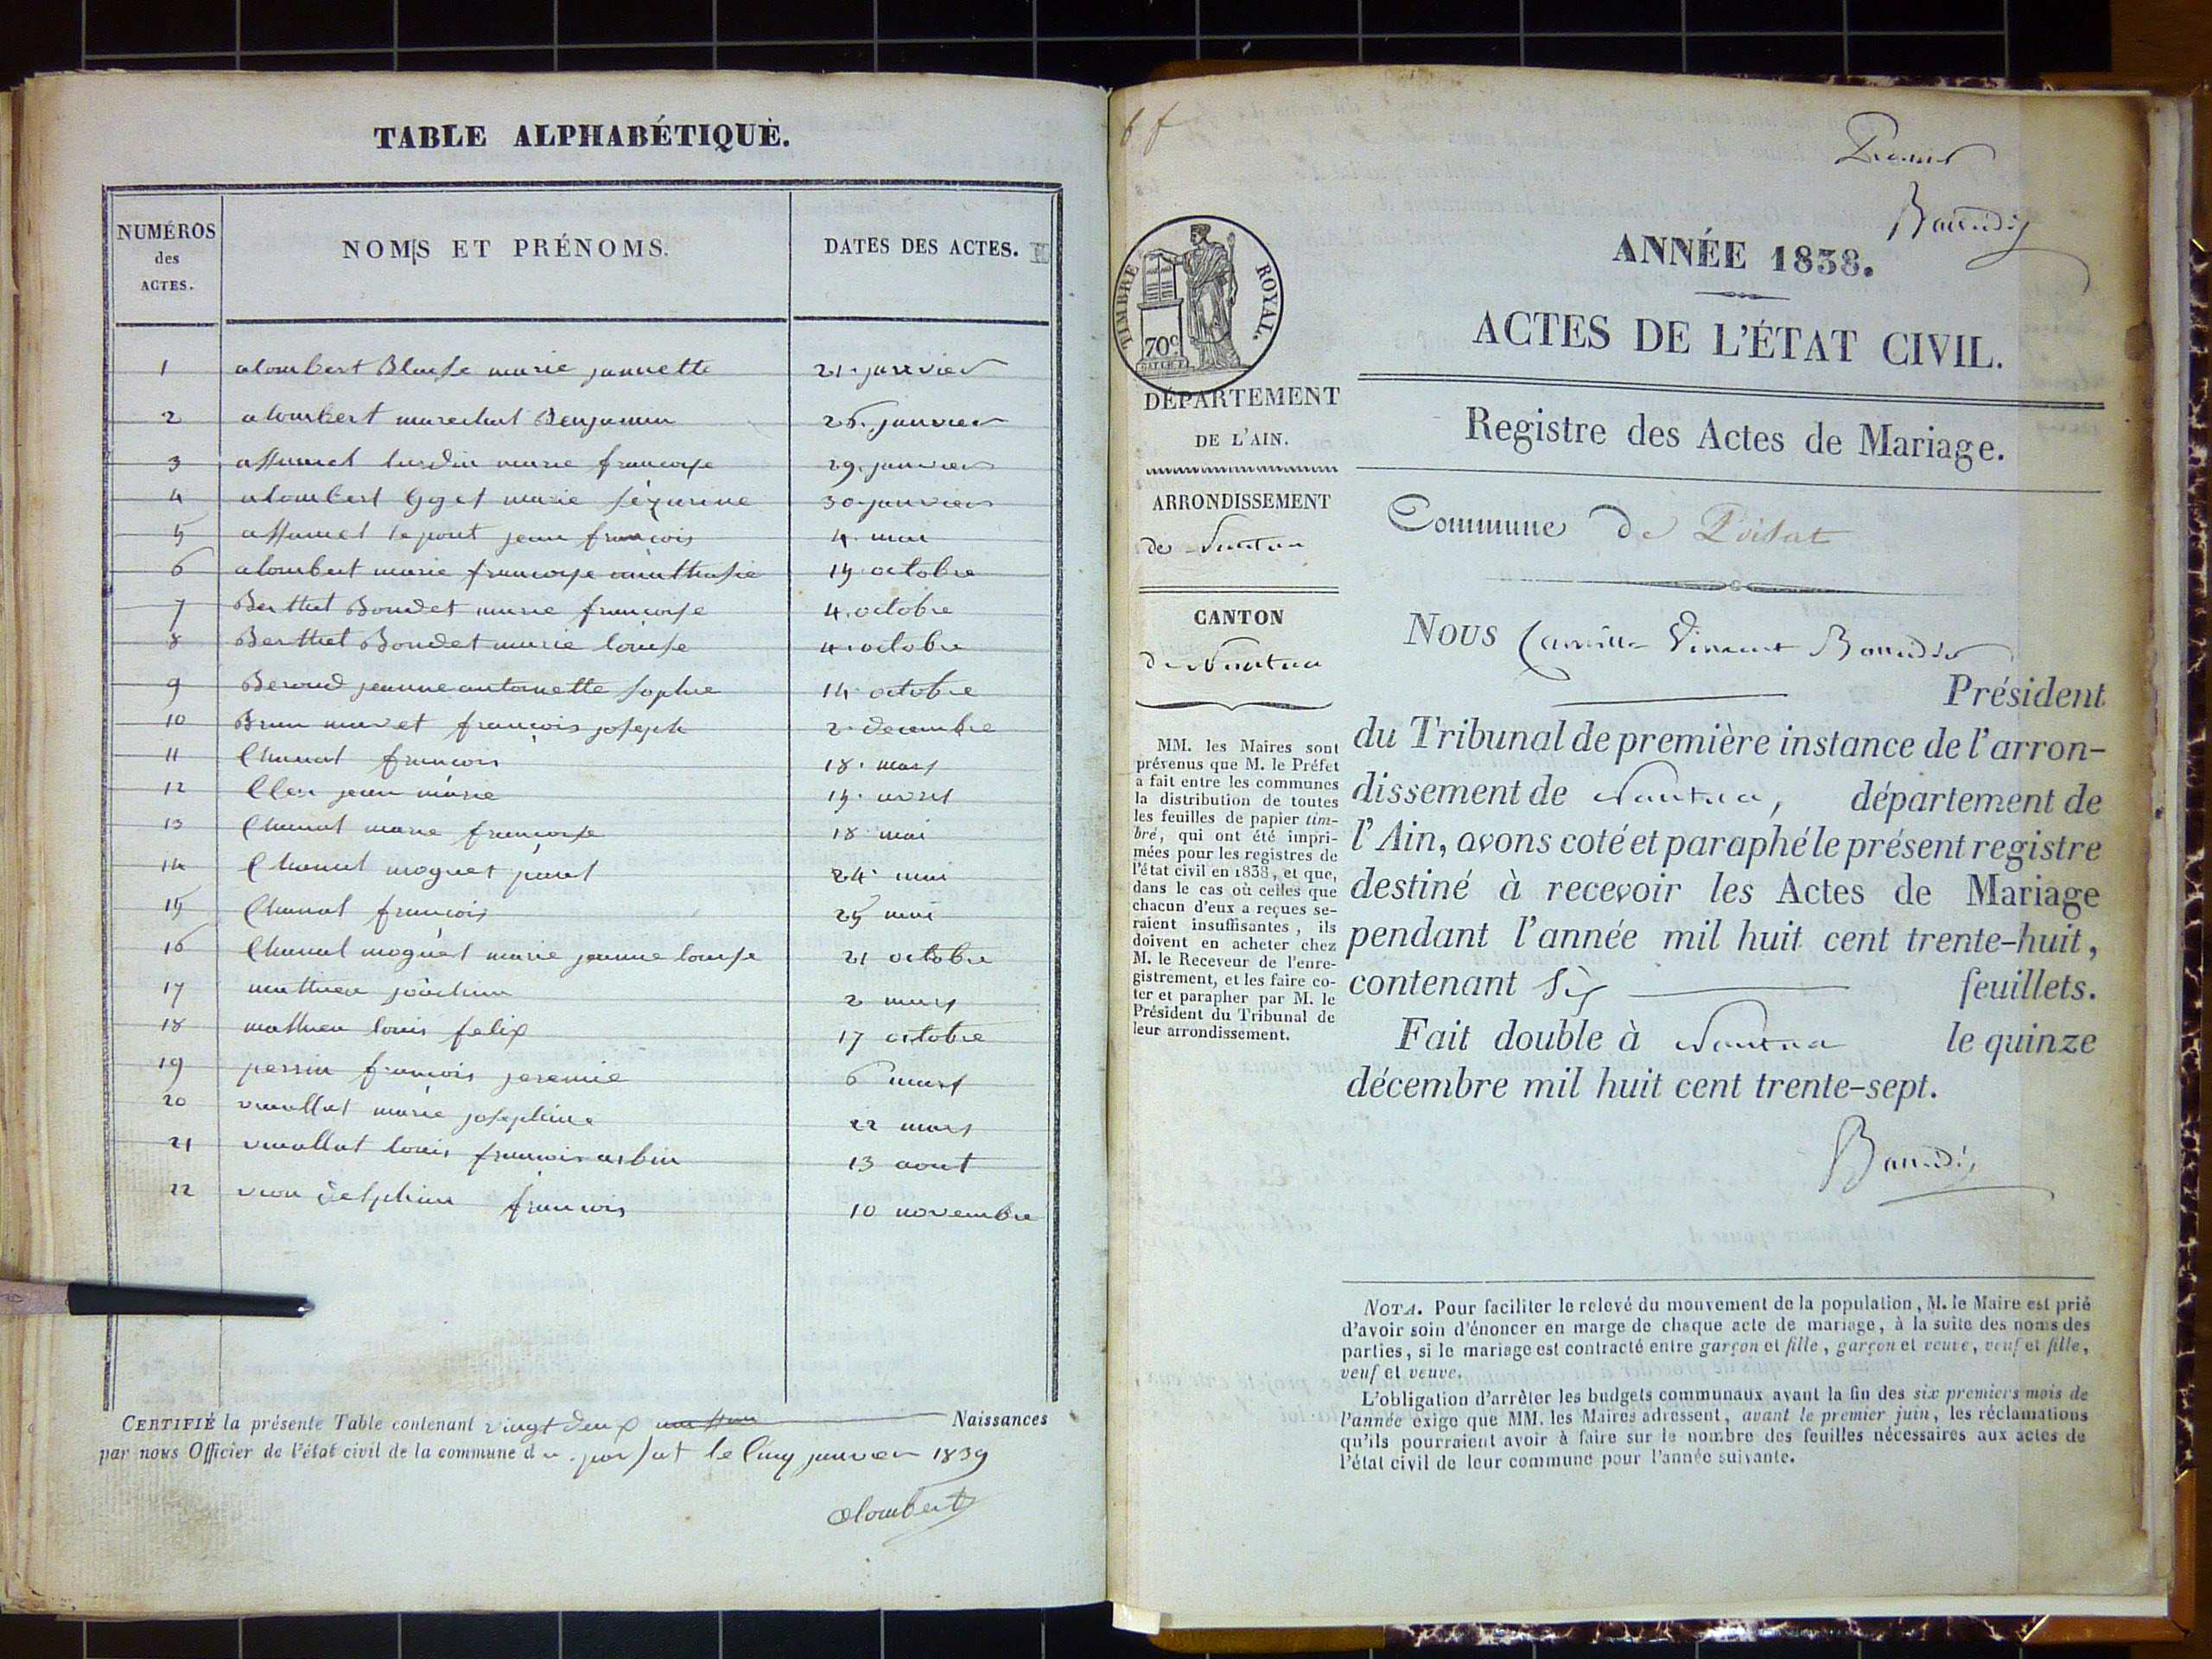 TABLE ALPHABÉTIQUE.
NUMÉROS
des
ACTES.
NOMS ET PRÉNOMS.
DATES DES ACTES.
1 alombert Blaise marie jannette 21. janvier
2 alombert marechal Benjamin 26. janvier
3 assumel lurdin marie francoise 29. janvier
4 alombert Goget marie 30 janvier
5 assumel lepont jean francois 4. mai
6 alombert marie francoise 19 octobre
7 Berthet Bondet marie francoise 4. octobre
8 Berthet Bondet marie louise 4. octobre
9 Beroud jeanne antoinette sophie 14 octobre
10 Brun françois joseph 2. decembre
11 Chanal francois 18. mars
12 jean marie avril
13 Chanal marie francoise 18 mai
14 Chanal moguet 24. mai
15 Chanal francois 25 mai
16 Chanal moguet marie jeanne louise 21 octobre
17 mathieu joachim 2 mars
18 mathieu louis felix 17 octobre
19 perrin francois jeremie 6 mars
20 vuaillat marie josephine 22 mars
21 vuaillat louis francois 13 aout
22 delphin francois 10 novembre
CERTIFIÉ la présente Table contenant vingt deux Naissances
par nous Officier de l'état civil de la commune de poisat le cinq janvier 1839
alombert
6 f
Premier
Baudin
TIMBRE ROYAL.
70c
ANNÉE 1838.
ACTES DE L'ÉTAT CIVIL.
Registre des Actes de Mariage.
DÉPARTEMENT
DE L'AIN.
ARRONDISSEMENT
de Nantua
CANTON
de Nantua
MM. les Maires sont
prévenus que M. le Préfet
a fait entre les communes
la distribution de toutes
les feuilles de papier tim-
bré, qui ont été impri-
mées pour les registres de
l'état civil en 1838, et que,
dans le cas où celles que
chacun d'eux a reçues se-
raient insuffisantes, ils
doivent en acheter chez
M. le Receveur de l'enre-
gistrement, et les faire co-
ter et parapher par M. le
Président du Tribunal de
leur arrondissement.
Commune de Poisat
Nous Camille Vincent
Président
du Tribunal de première instance de l'arron-
dissement de Nantua, département de
l'Ain, avons coté et paraphé le présent registre
destiné à recevoir les Actes de Mariage
pendant l'année mil huit cent trente-huit,
contenant Six feuillets.
Fait double à Nantua le quinze
décembre mil huit cent trente-sept.
NOTA. Pour faciliter le relevé du mouvement de la population, M. le Maire est prié
d'avoir soin d'énoncer en marge de chaque acte de mariage, à la suite des noms des
parties, si le mariage est contracté entre garçon et fille, garçon et veuve, veuf et fille,
veuf et veuve.
L'obligation d'arrêter les budgets communaux avant la fin des six premiers mois de
l'année exige que MM. les Maires adressent, avant le premier juin, les réclamations
qu'ils pourraient avoir à faire sur le nombre des feuilles nécessaires aux actes de
l'état civil de leur commune pour l'année suivante.